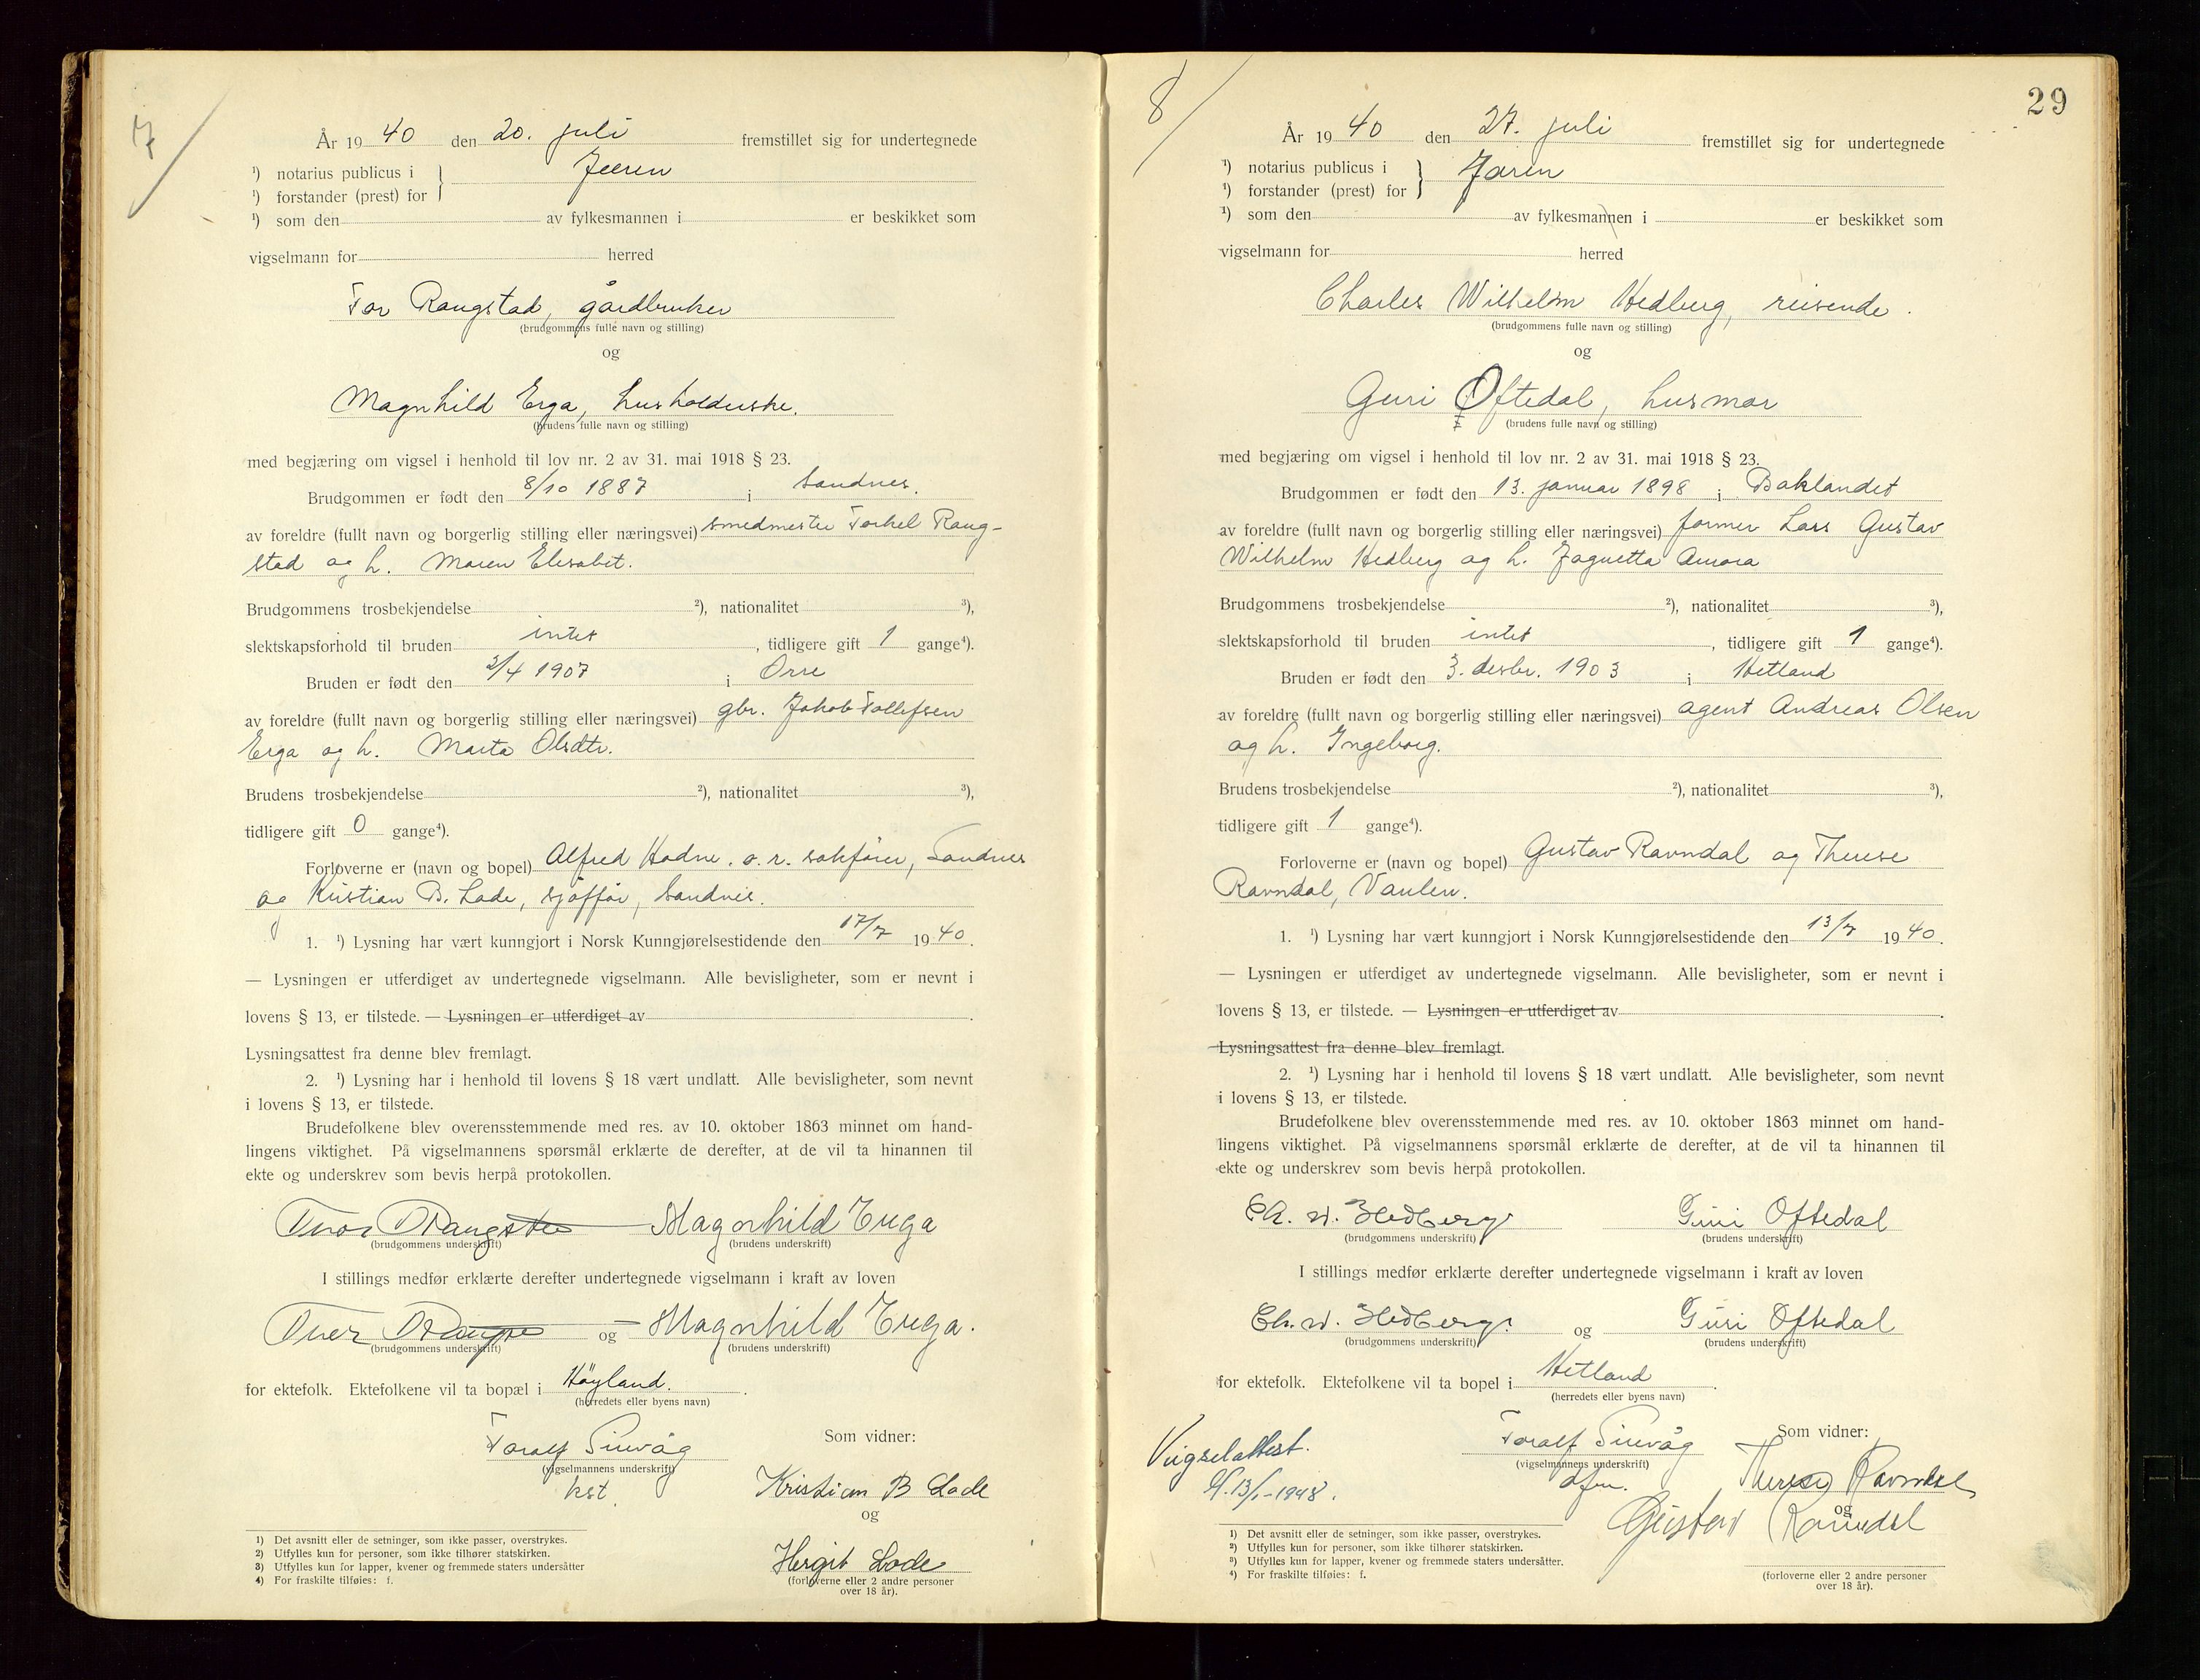 7
År 1940 den 20. juli fremstillet sig for undertegnede
¹) notarius publicus i } Jæren
¹) forstander (prest) for
¹) som den av fylkesmannen i er beskikket som
vigselmann for herred
Tor Raugstad, gårdbruker
(brudgommens fulle navn og stilling)
og
Magnhild Erga, husholderske.
(brudens fulle navn og stilling)
med begjæring om vigsel i henhold til lov nr. 2 av 31. mai 1918 § 23.
Brudgommen er født den 8/10 1887 i Sandnes.
av foreldre (fullt navn og borgerlig stilling eller næringsvei) smedmester Torkel Raug-
stad og h. Maren Elisabet.
Brudgommens trosbekjendelse ²), nationalitet ³),
slektskapsforhold til bruden intet, tidligere gift 1 gange⁴).
Bruden er født den 2/4 1907 i Orre
av foreldre (fullt navn og borgerlig stilling eller næringsvei) gbr. Jakob Tollefsen
Erga og h. Marta Olsdtr.
Brudens trosbekjendelse ²), nationalitet ³),
tidligere gift 0 gange⁴).
Forloverne er (navn og bopel) Alfred Hadne, o. r. sakfører, Sandnes
og Kristian B. Lode, sjåffør, Sandnes.
1. ¹) Lysning har vært kunngjort i Norsk Kunngjørelsestidende den 17/7 1940.
— Lysningen er utferdiget av undertegnede vigselmann. Alle bevisligheter, som er nevnt i
lovens § 13, er tilstede. — Lysningen er utferdiget av .
Lysningsattest fra denne blev fremlagt.
2. ¹) Lysning har i henhold til lovens § 18 vært undlatt. Alle bevisligheter, som nevnt
i lovens § 13, er tilstede.
Brudefolkene blev overensstemmende med res. av 10. oktober 1863 minnet om hand-
lingens viktighet. På vigselmannens spørsmål erklærte de derefter, at de vil ta hinannen til
ekte og underskrev som bevis herpå protokollen.
Magnhild Erga
(brudgommens underskrift) (brudens underskrift)
I stillings medfør erklærte derefter undertegnede vigselmann i kraft av loven
og Magnhild Erga.
(brudgommens underskrift) (brudens underskrift)
for ektefolk. Ektefolkene vil ta bopæl i Höyland.
(herredets eller byens navn)
Toralf Sirevåg
(vigselmannens underskrift)
kst.
Som vidner:
Kristian B Lode
og
Hergit Lode
(forloverne eller 2 andre personer
over 18 år).
1) Det avsnitt eller de setninger, som ikke passer, overstrykes.
2) Utfylles kun for personer, som ikke tilhører statskirken.
3) Utfylles kun for lapper, kvener og fremmede staters undersåtter
4) For fraskilte tilføies: f.
8
29
År 1940 den 27. juli fremstillet sig for undertegnede
¹) notarius publicus i } Jæren
¹) forstander (prest) for
¹) som den av fylkesmannen i er beskikket som
vigselmann for herred
Charles Wilhelm Hedberg, reisende.
(brudgommens fulle navn og stilling)
og
Guri Oftedal, husmor
(brudens fulle navn og stilling)
med begjæring om vigsel i henhold til lov nr. 2 av 31. mai 1918 § 23.
Brudgommen er født den 13. januar 1898 i Baklandet
av foreldre (fullt navn og borgerlig stilling eller næringsvei) former Lars Gustav
Wilhelm Hedberg og h. Jaguetta Aurora
Brudgommens trosbekjendelse ²), nationalitet ³),
slektskapsforhold til bruden intet, tidligere gift 1 gange⁴).
Bruden er født den 3. desbr. 1903 i Hetland
av foreldre (fullt navn og borgerlig stilling eller næringsvei) agent Andreas Olsen
og h. Ingeborg.
Brudens trosbekjendelse ²), nationalitet ³),
tidligere gift 1 gange⁴).
Forloverne er (navn og bopel) Gustav Ravndal og Therese
Ravndal, Vaulen.
1. ¹) Lysning har vært kunngjort i Norsk Kunngjørelsestidende den 13/7 1940.
— Lysningen er utferdiget av undertegnede vigselmann. Alle bevisligheter, som er nevnt i
lovens § 13, er tilstede. — Lysningen er utferdiget av .
Lysningsattest fra denne blev fremlagt.
2. ¹) Lysning har i henhold til lovens § 18 vært undlatt. Alle bevisligheter, som nevnt
i lovens § 13, er tilstede.
Brudefolkene blev overensstemmende med res. av 10. oktober 1863 minnet om hand-
lingens viktighet. På vigselmannens spørsmål erklærte de derefter, at de vil ta hinannen til
ekte og underskrev som bevis herpå protokollen.
Ch. W. Hedberg Guri Oftedal
(brudgommens underskrift) (brudens underskrift)
I stillings medfør erklærte derefter undertegnede vigselmann i kraft av loven
Ch. W. Hedberg. og Guri Oftedal
(brudgommens underskrift) (brudens underskrift)
for ektefolk. Ektefolkene vil ta bopel i Hetland.
(herredets eller byens navn)
Vigselattest.
13/1-1948.
Toralf Sirevåg
(vigselmannens underskrift)
dfm.
Som vidner:
Therese Ravndal
og
Gustav Ravndal
(forloverne eller 2 andre personer
over 18 år).
1) Det avsnitt eller de setninger, som ikke passer, overstrykes.
2) Utfylles kun for personer, som ikke tilhører statskirken.
3) Utfylles kun for lapper, kvener og fremmede staters undersåtter.
4) For fraskilte tilføies: f.